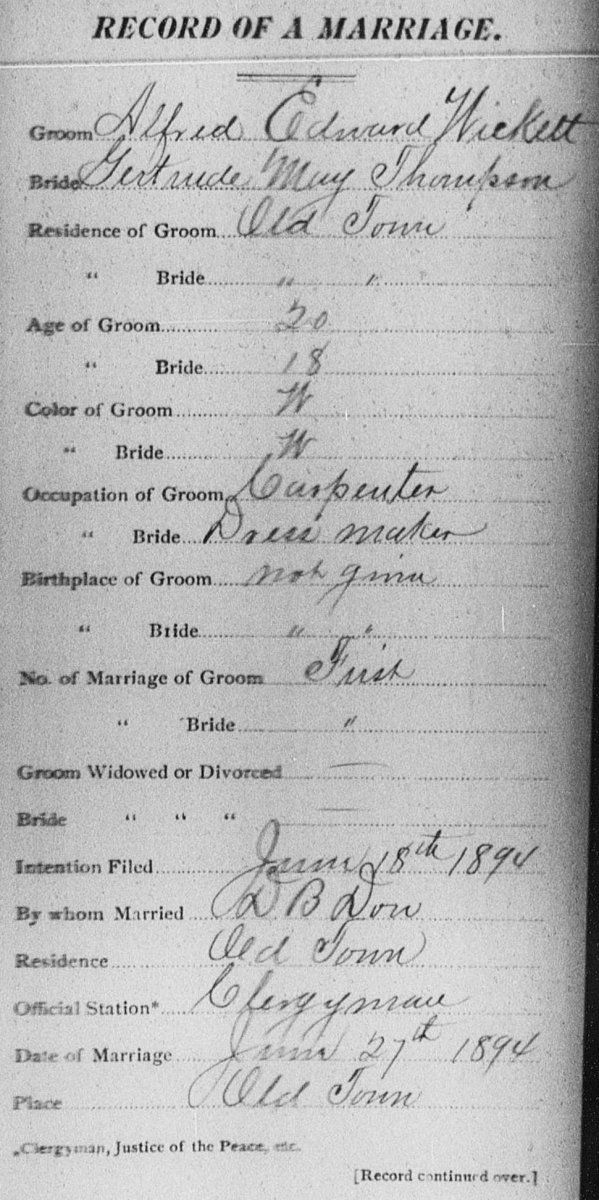 RECORD OF A MARRIAGE.
Groom Alfred Edward Wickett
Bride Gertrude May Thompson
Residence of Groom Old Town
" Bride " "
Age of Groom 20
" Bride 18
Color of Groom W
" Bride W
Occupation of Groom Carpenter
" Bride Dress maker
Birthplace of Groom not given
" Bride " "
No. of Marriage of Groom First
" Bride "
Groom Widowed or Divorced —
Bride " " " —
Intention Filed June 18th 1894
By whom Married D B Dow
Residence Old Town
Official Station* Clergyman
Date of Marriage June 27th 1894
Place Old Town
*Clergyman, Justice of the Peace, etc.
[Record continued over.]